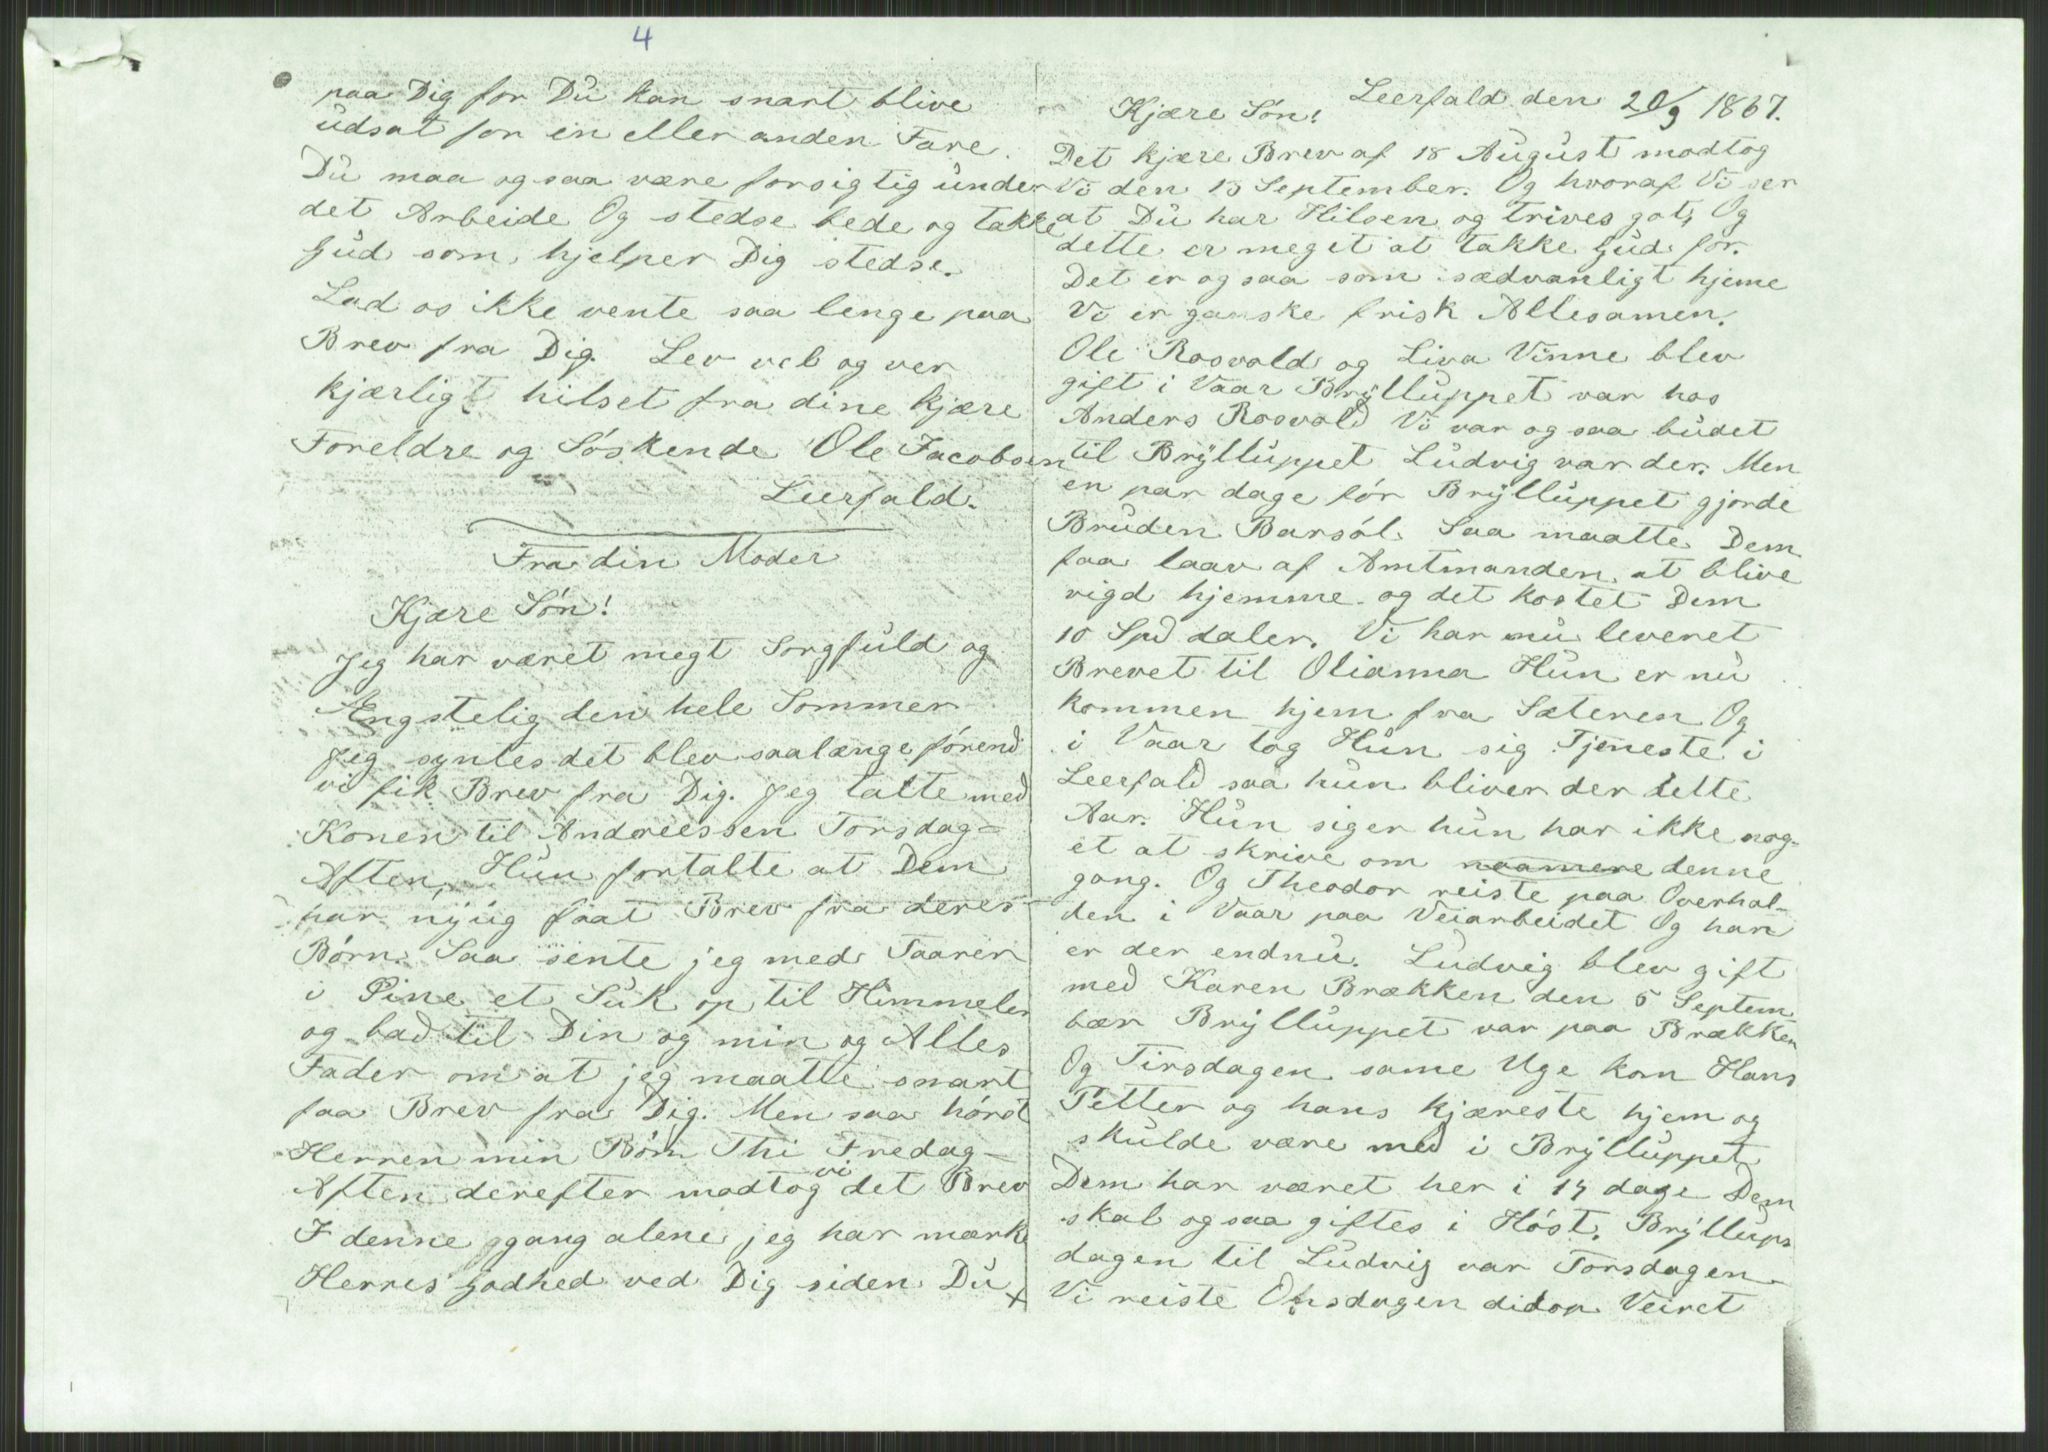 4
paa Dig for Du kan snart blive
udsat for en eller anden Fare.
Du maa ogsaa være forsigtig under
det Arbeide Og stedse bede og takke
Gud som hjelper Dig stedse.
Lad os ikke vente saa lenge paa
Brev fra Dig. Lev vel og ver
kjærligt hilset fra dine kjære
Foreldre og Søskende Ole Jacobsen
Leerfald.
Fra din Moder
Kjære Søn!
Jeg har været megt Sorgfuld og
Ængstelig den hele Sommer
Jeg syntes det blev saalænge førend
vi fik Brev fra Dig. Jeg talte med
Konen til Andreessen Torsdag-
Aften, Hun fortalte at Dem
har nyug faat Brev fra deres
Børn. Saa sente jeg med Taarer
i Øine et Suk op til Himmelen
og bad til Din og min og Alles
Fader om at jeg maatte snart
faa Brev fra Dig. Men saa hørdt
Herren min Bøn Thi Fredag-
Aften derefter modtog vi det Brev
I denne ggang alene jeg har mærke
Herres Godhed ved Dig siden Du x
Leerfald den 20/9 1867.
Kjære Søn!
Det kjære Brev af 18 August modtog
Vi den 13 September. Og hvoraf Vi ser
at Du har Hilsen og trives got, Og
dette er meget at takke Gud for.
Det er ogsaa som sædvanligt hjeme
Vi er ganske frisk Allesamen.
Ole Rosvold og Liva Vinne blev
gift i Vaar Brÿlluppet var hos
Anders Rosvold Vi var ogsaa budet
til Brÿlluppet Ludvig var der. Men
en par dage før Brÿlluppet gjorde
Bruden Barsøl. Saa maatte Dem
faa laav af Amtmanden at blive
vigd hjemme og det kostet Dem
10 Spd daler. Vi har nu leveret
Brevet til Olianna Hun er nu
kommen hjem fra Sæteren Og
i Vaar tog Hun sig Tjeneste i
Leerfald saa hun bliver der dette
Aar. Hun siger hun har ikke nog-
et at skrive om naamere denne
gang. Og Theodor reiste paa Overhal-
den i Vaar paa Veiarbeidet Og han
er der endnu. Ludvig blev gift
med Karen Brækken den 5 Septem
bær Brÿlluppet var paa Brækken
Og Tirsdagen same Uge kom Hans
Petter og hans kjæreste hjem og
skulde være med i Brÿlluppet
Dem har været her i 14 dage Dem
skal ogsaa giftes i Høst. Brÿllups
dagen til Ludvig var Torsdagen
Vi reiste Onsdagen didop Veiret